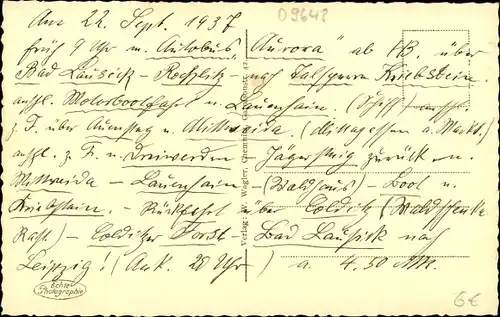 Am 22. Sept. 1937
09648
früh 9 Uhr m. Autobus „Aurora“ ab über
Bad Lausick – Rochlitz – nach Talsperre Kriebstein.
anschl. Motorbootfahrt n. Lauenhain. (Schiff) anschl.
z. F. über Auensteg n. Mittweida. (Mittagessen a. Markt.)
anschl. z. F. n. Dreiwerden – Jägersteig zurück n.
Mittweida – Lauenhain – (Waldhaus) – Boot n.
Kriebstein. Rückfahrt über Colditz (Waldschenke
Rast.) – Colditzer Forst – Bad Lausick nach
Leipzig! (Ank. 20 Uhr) a. 4.50 Mk.
Verlag: W. Wagler, Chemnitz, 42.
Echte Photographie
6€